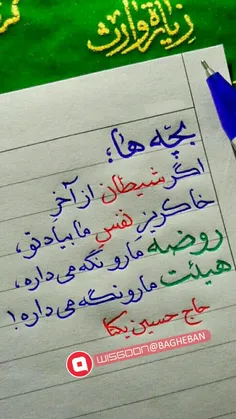 زیارة وارث
بچه ها؛
اگر شیطان از آخر
خاکریز نفس ما بیاد تو،
روضه مارو نگه می داره،
هیئت مارو نگه می داره!
حاج حسین یکتا
WISGOON@BAGHEBAN